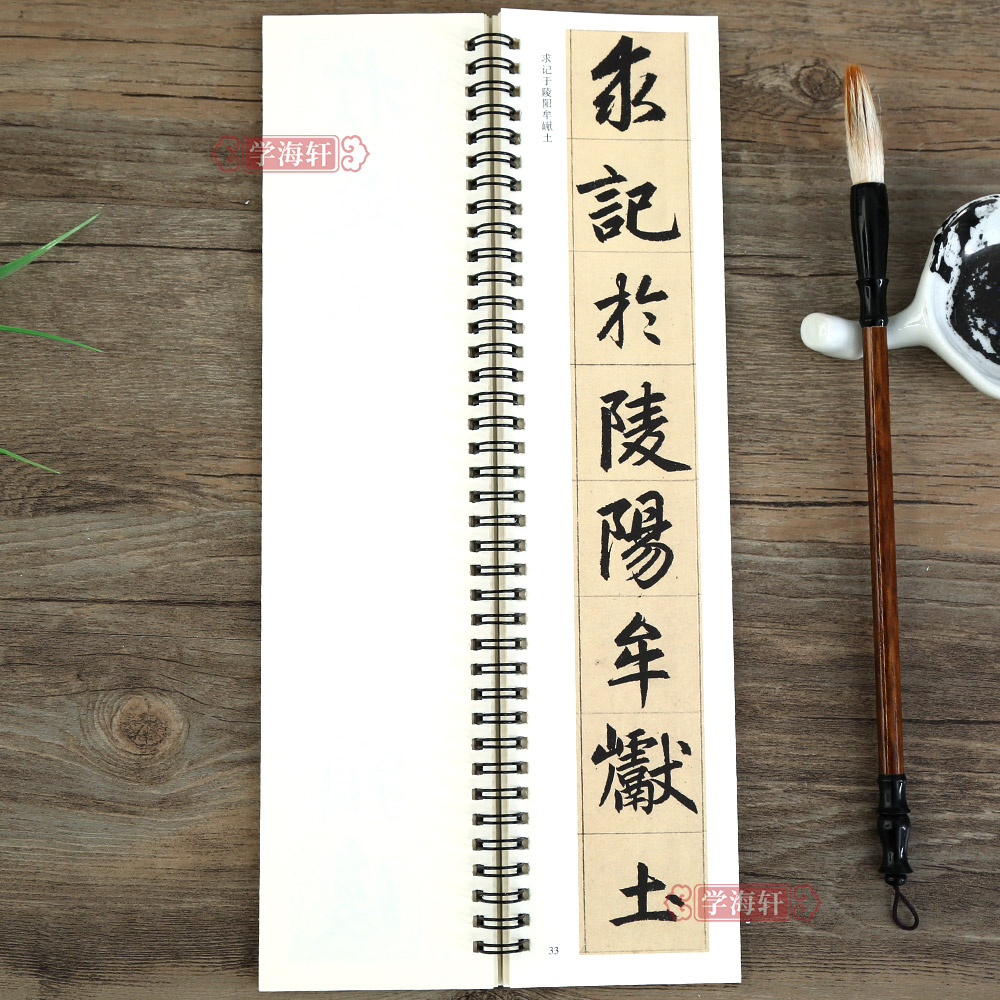 学海轩
求记于陵阳牟巘土
求記於陵陽牟巘土
33
学海轩